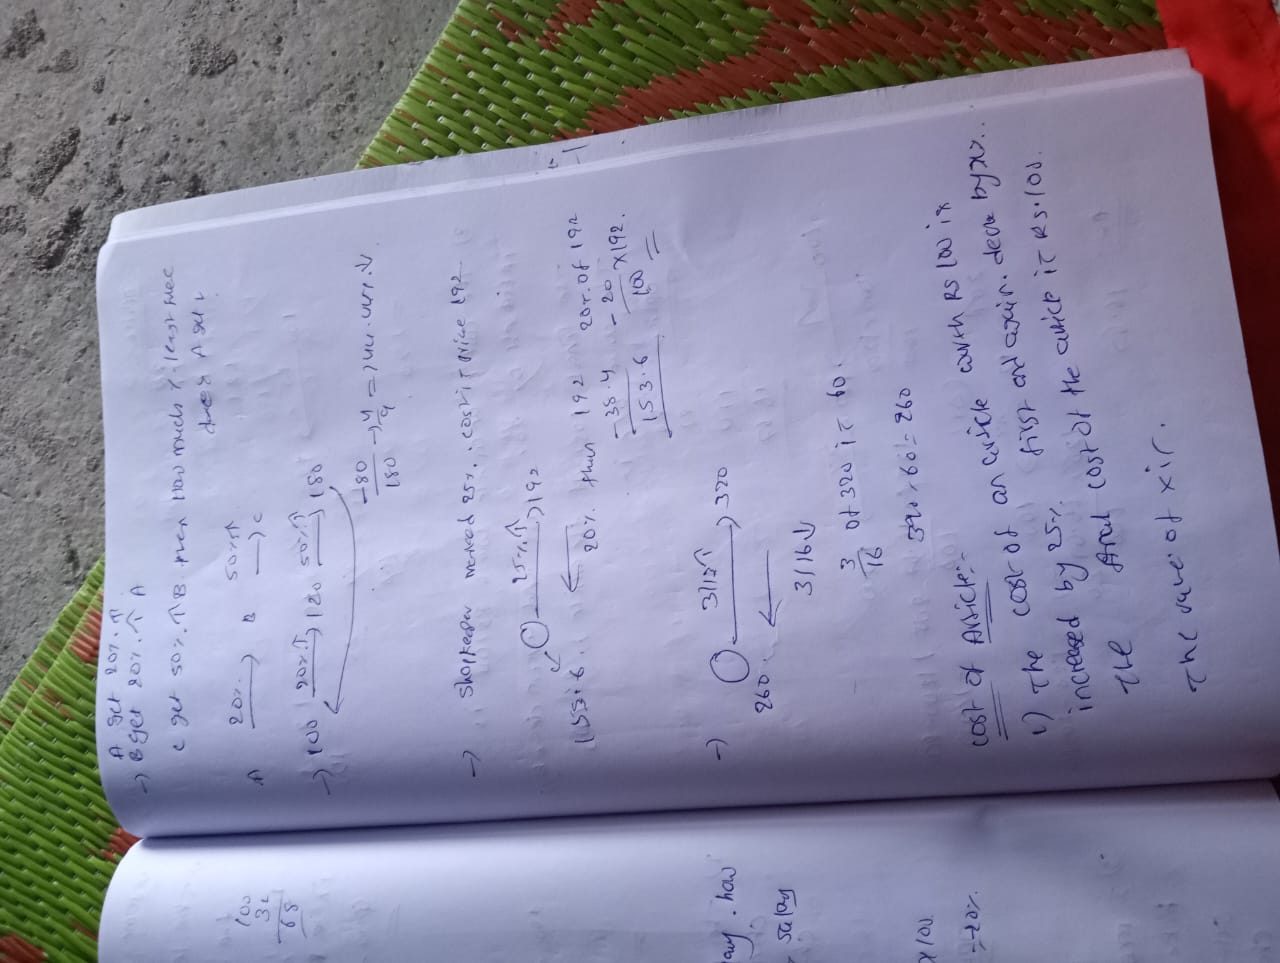 A get 20%.↑
→ B get 20%.↑ A
C get 50%.↑ B. then How much %.
A get
20%. 50%↑
A → B → C
→ 100 20%↑ 120 50%↑ 180
-80
180
→ 4
9
→ shopkeeper marked 25%. . cost price 192
25%↑
192
153.6. 20%. then 192 20%.of 192
- 38.4 - 20 x 192.
153.6 100
→ 320
260.
3/16↓
3
16 of 320 is 60.
= 260
cost of Article:-
1) The cost of an article worth RS 100 is
increased by 25%. first and again.
The final cost of the article is RS.100.
The value of x is.
100
68
how
salary
x100.
=20%.